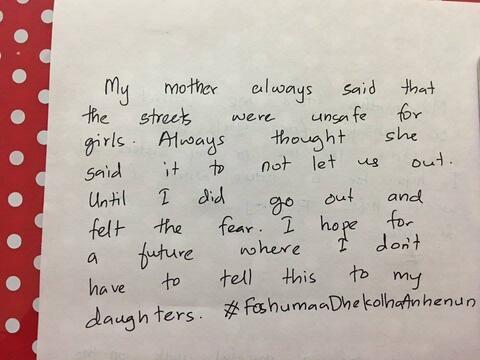 My mother always said that
the streets were unsafe for
girls. Always thought she
said it to not let us out.
Until I did go out and
felt the fear. I hope for
a future where I don't
have to tell this to my
daughters. #FoshumaaDhekolhaAnhenun